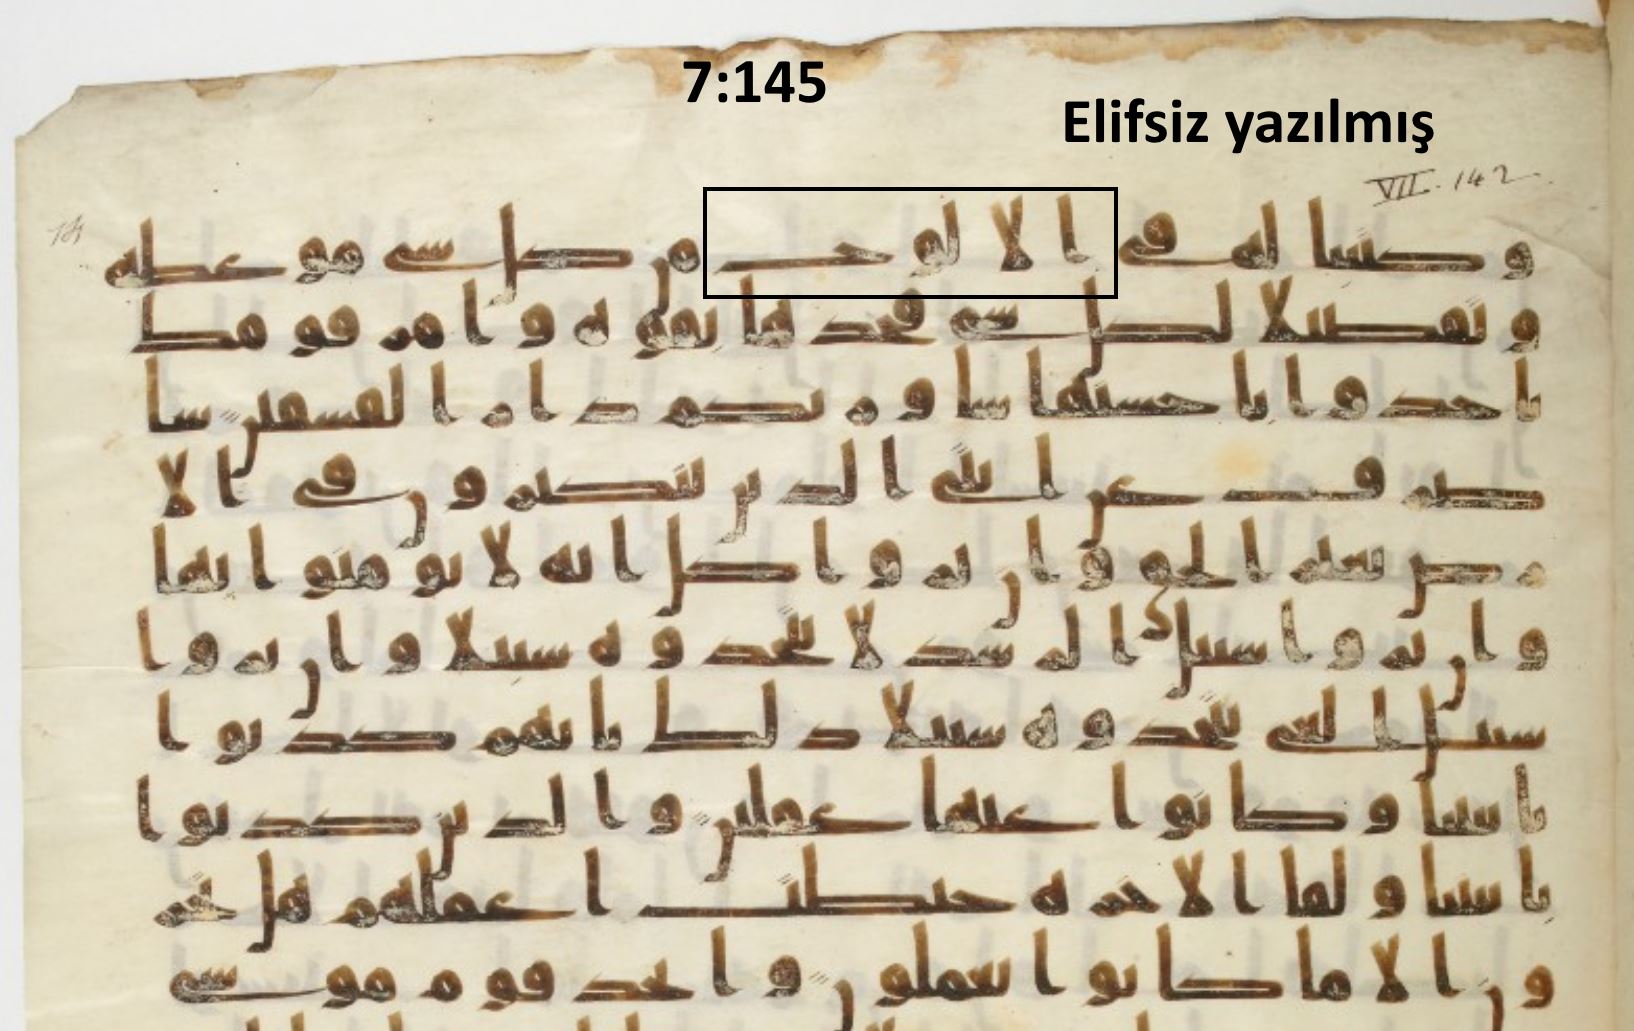 7:145
Elifsiz yazılmış
VII. 142
وكتبنا له في الالوح من كل شى موعظه
وتفصيلا لكل شى فخذها بقوه وامر قومك
ياخذوا باحسنها ساوريكم دار الفسقين سا
صرف عن ايتى الذين يتكبرون فى الا
رض بغير الحق وان يروا كل ايه لا يومنوا بها
وان يروا سبيل الرشد لا يتخذوه سبيلا وان يروا
سبيل الغى يتخذوه سبيلا ذلك بانهم كذبوا
باييتنا وكانوا عنها غفلين والذين كذبوا
باييتنا ولقا الاخره حبطت اعملهم هل يجز
ون الا ما كانوا يعملون واتخذ قوم موسى